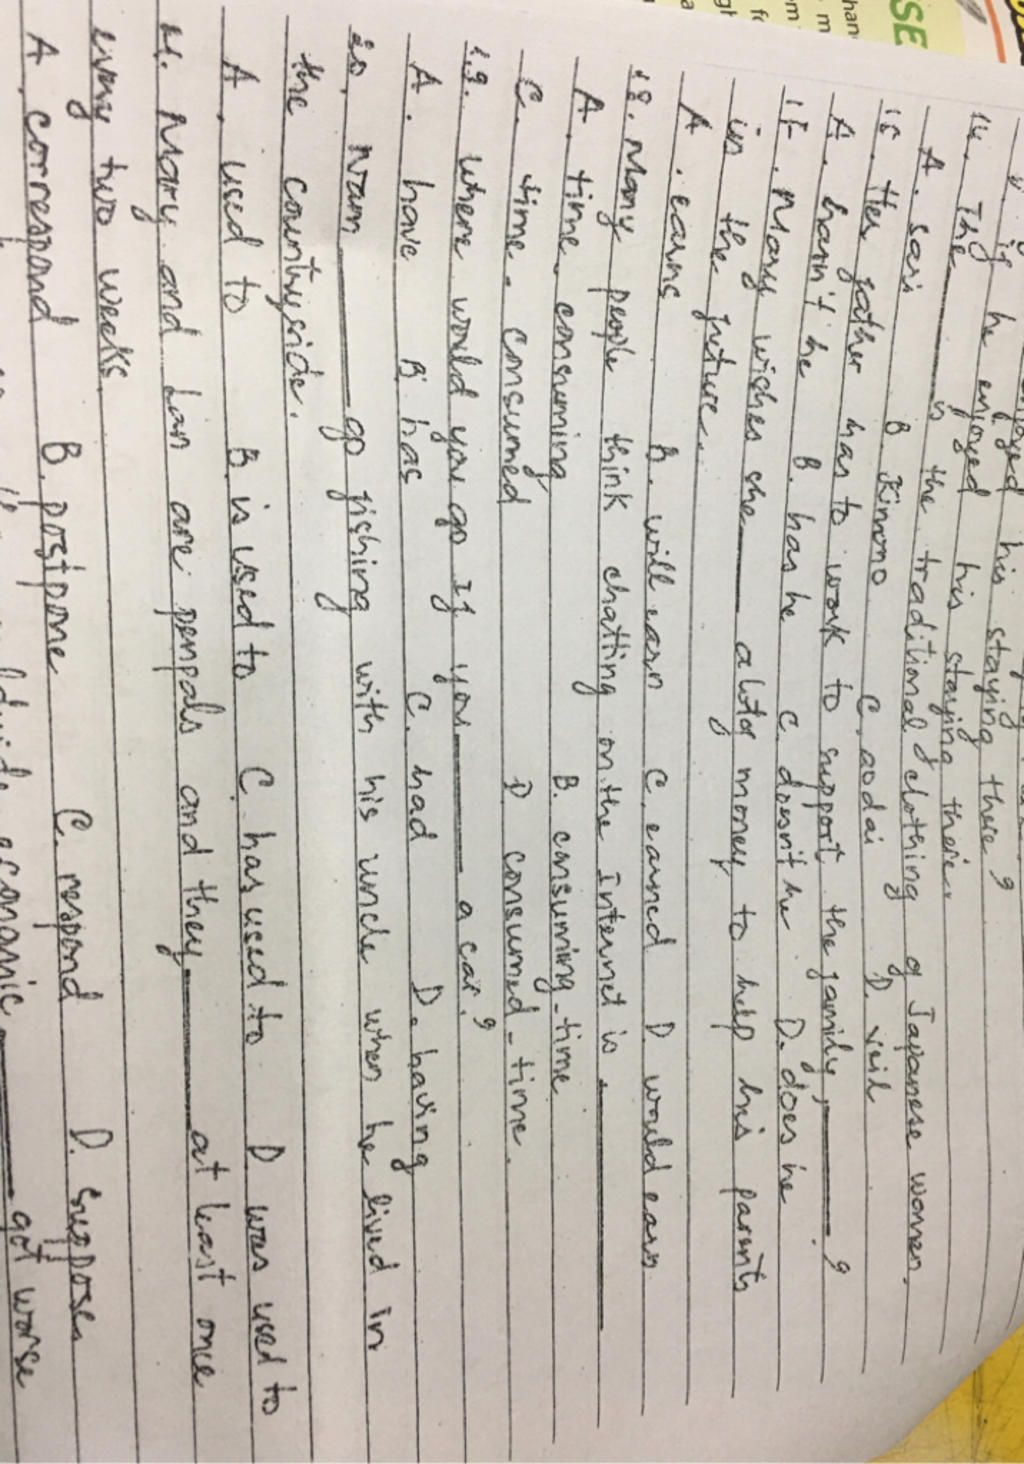 if he enjoyed his staying there?
he enjoyed his staying there.
14. The ______ is the traditional clothing of Japanese women.
A. sari B Kimono C. aodai D. veil
15. Her father has to work to support the family, ______?
A. hasn't he B. has he C. doesn't he D. does he
17. Mary wishes she ______ a lot of money to help his parents
in the future.
A. earns B. will earn C. earned D would earn
18. Many people think chatting on the Internet is ______
A. time-consuming B. consuming-time
C. time-consumed D consumed-time.
19. where would you go If you ______ a car?
A. have B. has C. had D. having
20. Nam ______ go fishing with his uncle when he lived in
the countryside.
A. used to B. is used to C. has used to D was used to
Mary and Lan are penpals and they ______ at least once
every two weeks
A. correspond B. postpone C. respond D. suppose
economic ______ got worse
SE